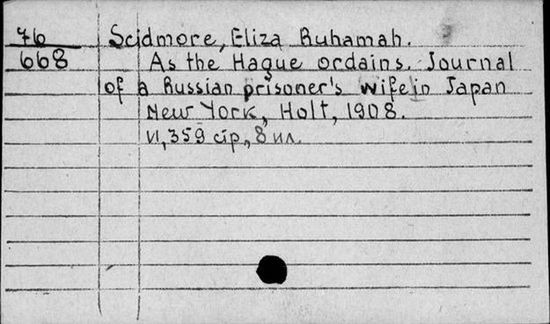 76 Scidmore, Eliza Ruhamah.
668 As the Hague ordains. Journal
of a Russian prisoner's wife in Japan
New York, Holt, 1908.
VI, 359 стр., 8 ил.